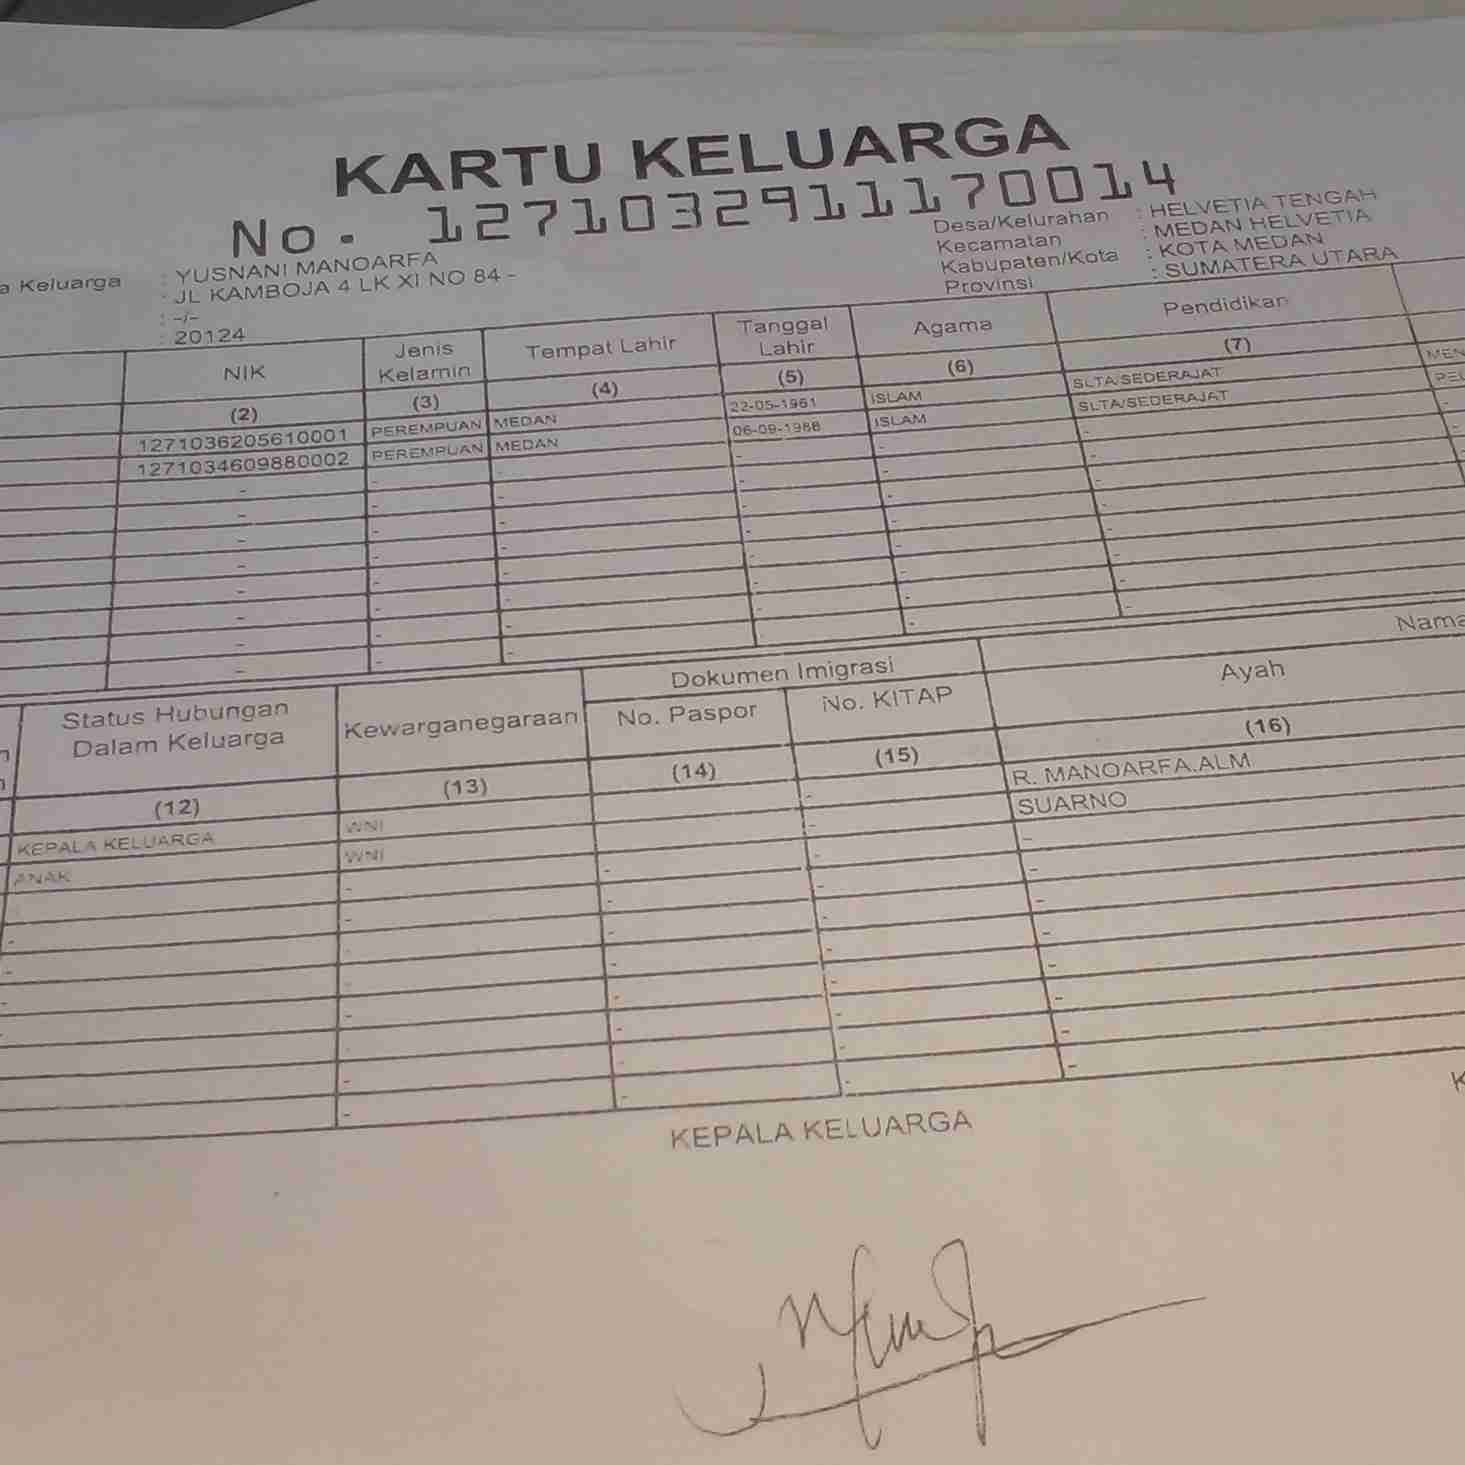 KARTU KELUARGA
No. 1271032911170014
a Keluarga : YUSNANI MANOARFA
: JL KAMBOJA 4 LK XI NO 84 -
: -/-
: 20124
Desa/Kelurahan : HELVETIA TENGAH
Kecamatan : MEDAN HELVETIA
Kabupaten/Kota : KOTA MEDAN
Provinsi : SUMATERA UTARA
NIK Jenis Kelamin Tempat Lahir Tanggal Lahir Agama Pendidikan
(2) (3) (4) (5) (6) (7)
1271036205610001 PEREMPUAN MEDAN 22-05-1961 ISLAM SLTA/SEDERAJAT MEN
1271034609880002 PEREMPUAN MEDAN 06-09-1988 ISLAM SLTA/SEDERAJAT PEL
Status Hubungan Dalam Keluarga Kewarganegaraan Dokumen Imigrasi Nama
No. Paspor No. KITAP Ayah
(12) (13) (14) (15) (16)
KEPALA KELUARGA WNI - R. MANOARFA.ALM
ANAK WNI - SUARNO
KEPALA KELUARGA